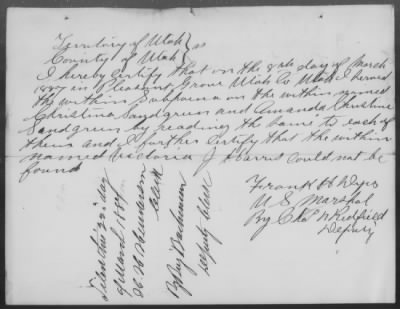 Territory of Utah } ss
County of Utah }
I hereby certify that on the 8th day of March
1887 in Pleasant Grove Utah Co Utah I served
the within Subpoena on the within named
Christina Sandgreen and Amanda Christine
Sandgreen by reading the same to each of
them and I further certify that the within
named Victoria J Harris could not be
found
Frank H Dyer
U S Marshal
By Chas
Deputy
Filed this 22d day
of March 1887
H H Henderson
Clerk
By Bachman
Deputy Clerk